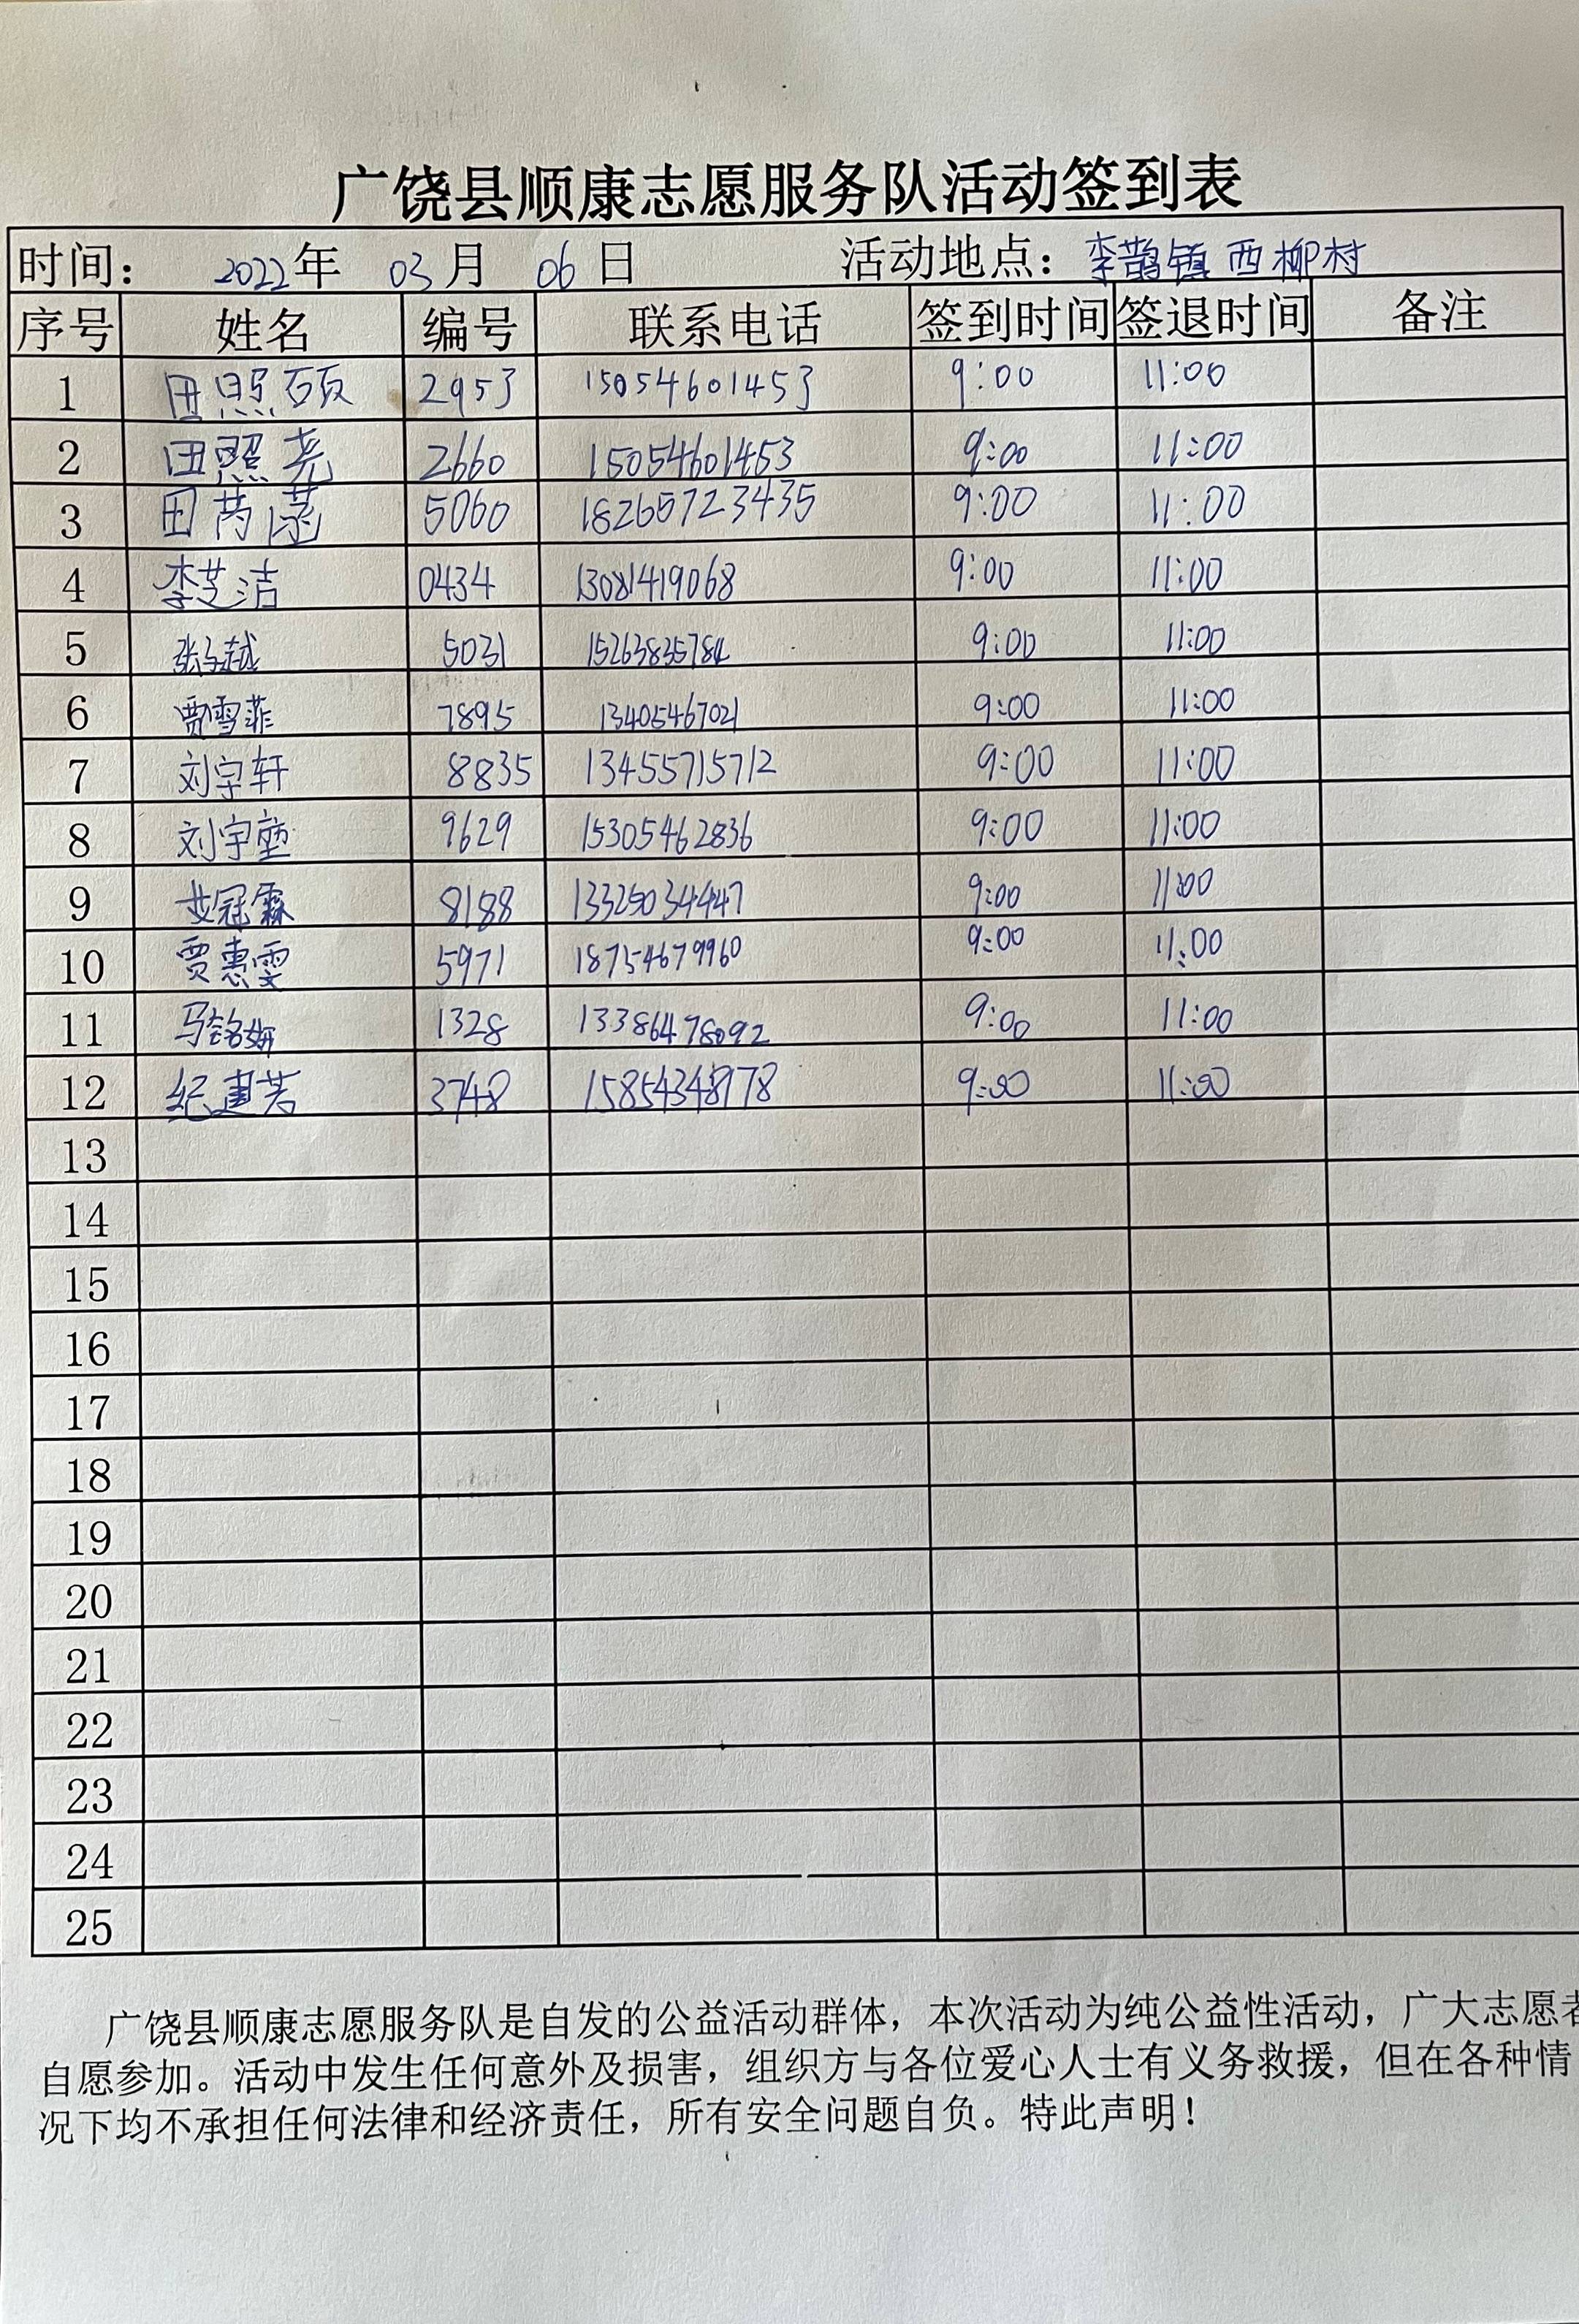 广饶县顺康志愿服务队活动签到表
时间： 2022年 03月 06日 活动地点：李鹊镇西柳村
序号 姓名 编号 联系电话 签到时间 签退时间 备注
1 田照硕 2953 15054601453 9:00 11:00
2 田照尧 2660 15054601453 9:00 11:00
3 田芮菡 5060 18265723435 9:00 11:00
4 李芝洁 0434 13081419068 9:00 11:00
5 张子越 5031 15263835784 9:00 11:00
6 贾雪菲 7895 13405467021 9:00 11:00
7 刘宇轩 8835 13455715712 9:00 11:00
8 刘宇堃 9629 15305462836 9:00 11:00
9 冠霖 8188 9:00 11:00
10 贾惠雯 5971 18754679960 9:00 11:00
11 马铭妍 1328 13386478092 9:00 11:00
12 纪建芳 3748 15854348178 9:00 11:00
13
14
15
16
17
18
19
20
21
22
23
24
25
广饶县顺康志愿服务队是自发的公益活动群体，本次活动为纯公益性活动，广大志愿者
自愿参加。活动中发生任何意外及损害，组织方与各位爱心人士有义务救援，但在各种情
况下均不承担任何法律和经济责任，所有安全问题自负。特此声明！